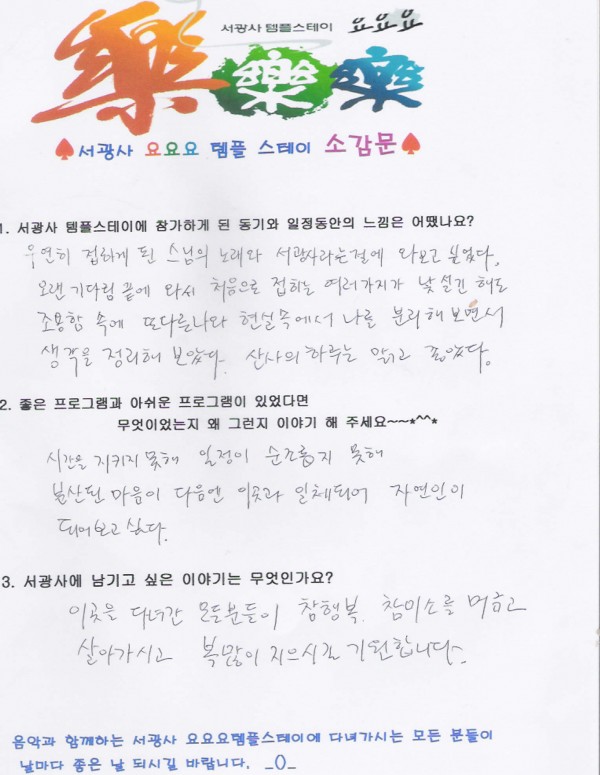 서광사 템플스테이 요요요
樂 樂 樂
서광사 요요요 템플 스테이 소감문
1. 서광사 템플스테이에 참가하게 된 동기와 일정동안의 느낌은 어땠나요?
우연히 접하게 된 스님의 노래와 서광사라는걸에 와보고 싶었다.
오랜 기다림 끝에 와서 처음으로 접하는 여러가지가 낯설긴 해도
조용함 속에 또다른나와 현실속에서 나를 분리해보면서
생각을 정리해 보았다. 산사의 하루는 맑고 좋았다.
2. 좋은 프로그램과 아쉬운 프로그램이 있었다면
무엇이었는지 왜 그런지 이야기 해 주세요~~*^^*
시간을 지키지 못해 일정이 순조롭지 못해
분산된 마음이 다음엔 이곳과 일체되어 자연인이
되어보고 싶다.
3. 서광사에 남기고 싶은 이야기는 무엇인가요?
이곳을 다녀간 모든분들이 참행복. 참미소를 머금고
살아가시고 복많이 지으시길 기원합니다.
음악과 함께하는 서광사 요요요템플스테이에 다녀가시는 모든 분들이
날마다 좋은 날 되시길 바랍니다. _0_